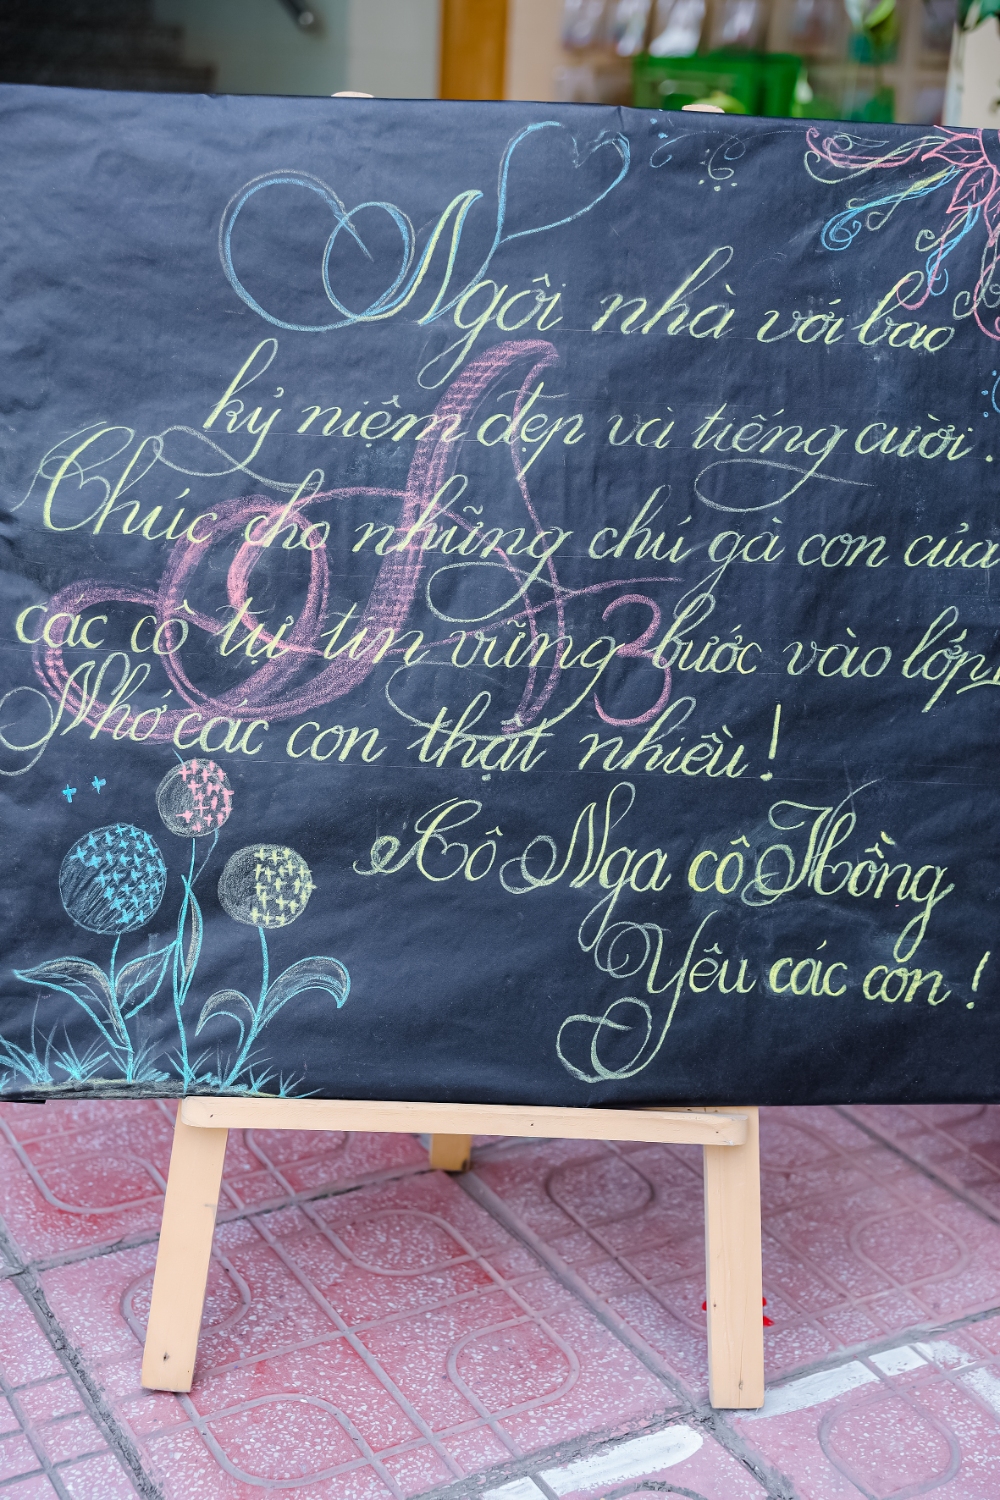 Ngôi nhà với bao
kỷ niệm đẹp và tiếng cười.
Chúc cho những chú gà con của
các cô tự tin vững bước vào lớp 1
Nhớ các con thật nhiều!
Cô Nga cô Hồng
Yêu các con!
A3